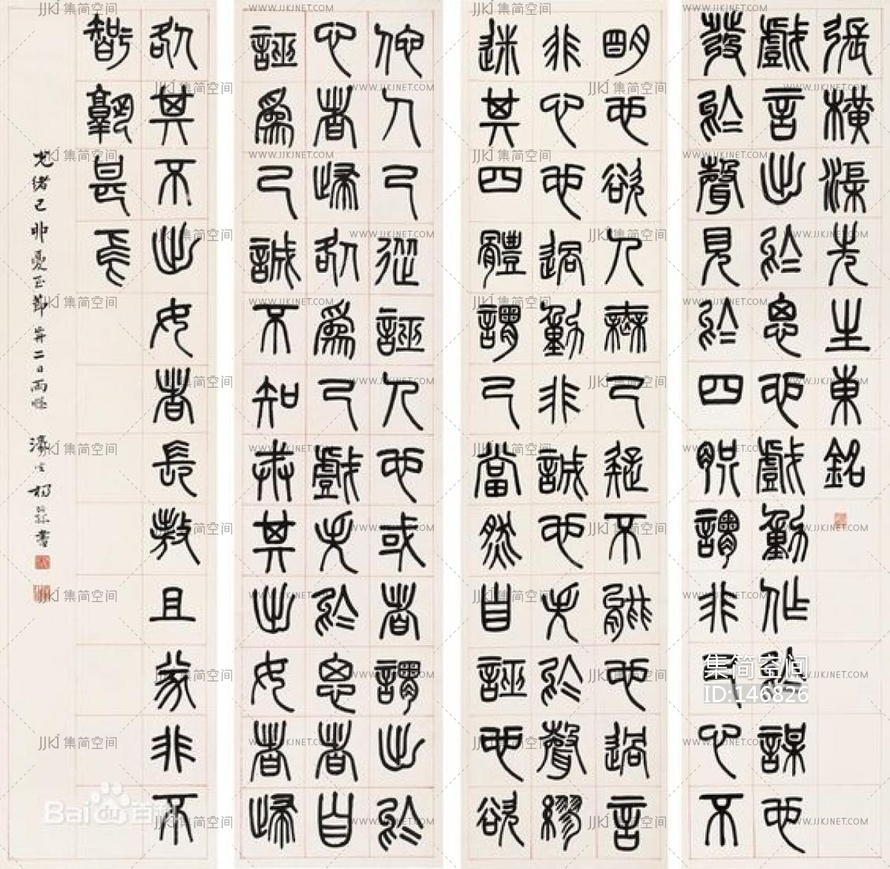 張橫渠先生東銘
戲言出於思也戲動作於謀也
發於聲見於四肢謂非己心不
明也欲人無己疑不能也過言
非心也過動非誠也失於聲繆
迷其四體謂己當然自誣也欲
佗人己從誣人也或者謂出於
心者歸咎爲己戲失於思者自
誣爲己誠不知戒其出女者歸
咎其不出女者長敖且遂非不
智孰甚焉
光緒己卯夏至節前二日雨牕 濠叟楊沂孫書
集简空间
ID:146826
JJKJ 集简空间
WWW.JJKJNET.COM
Bai百科